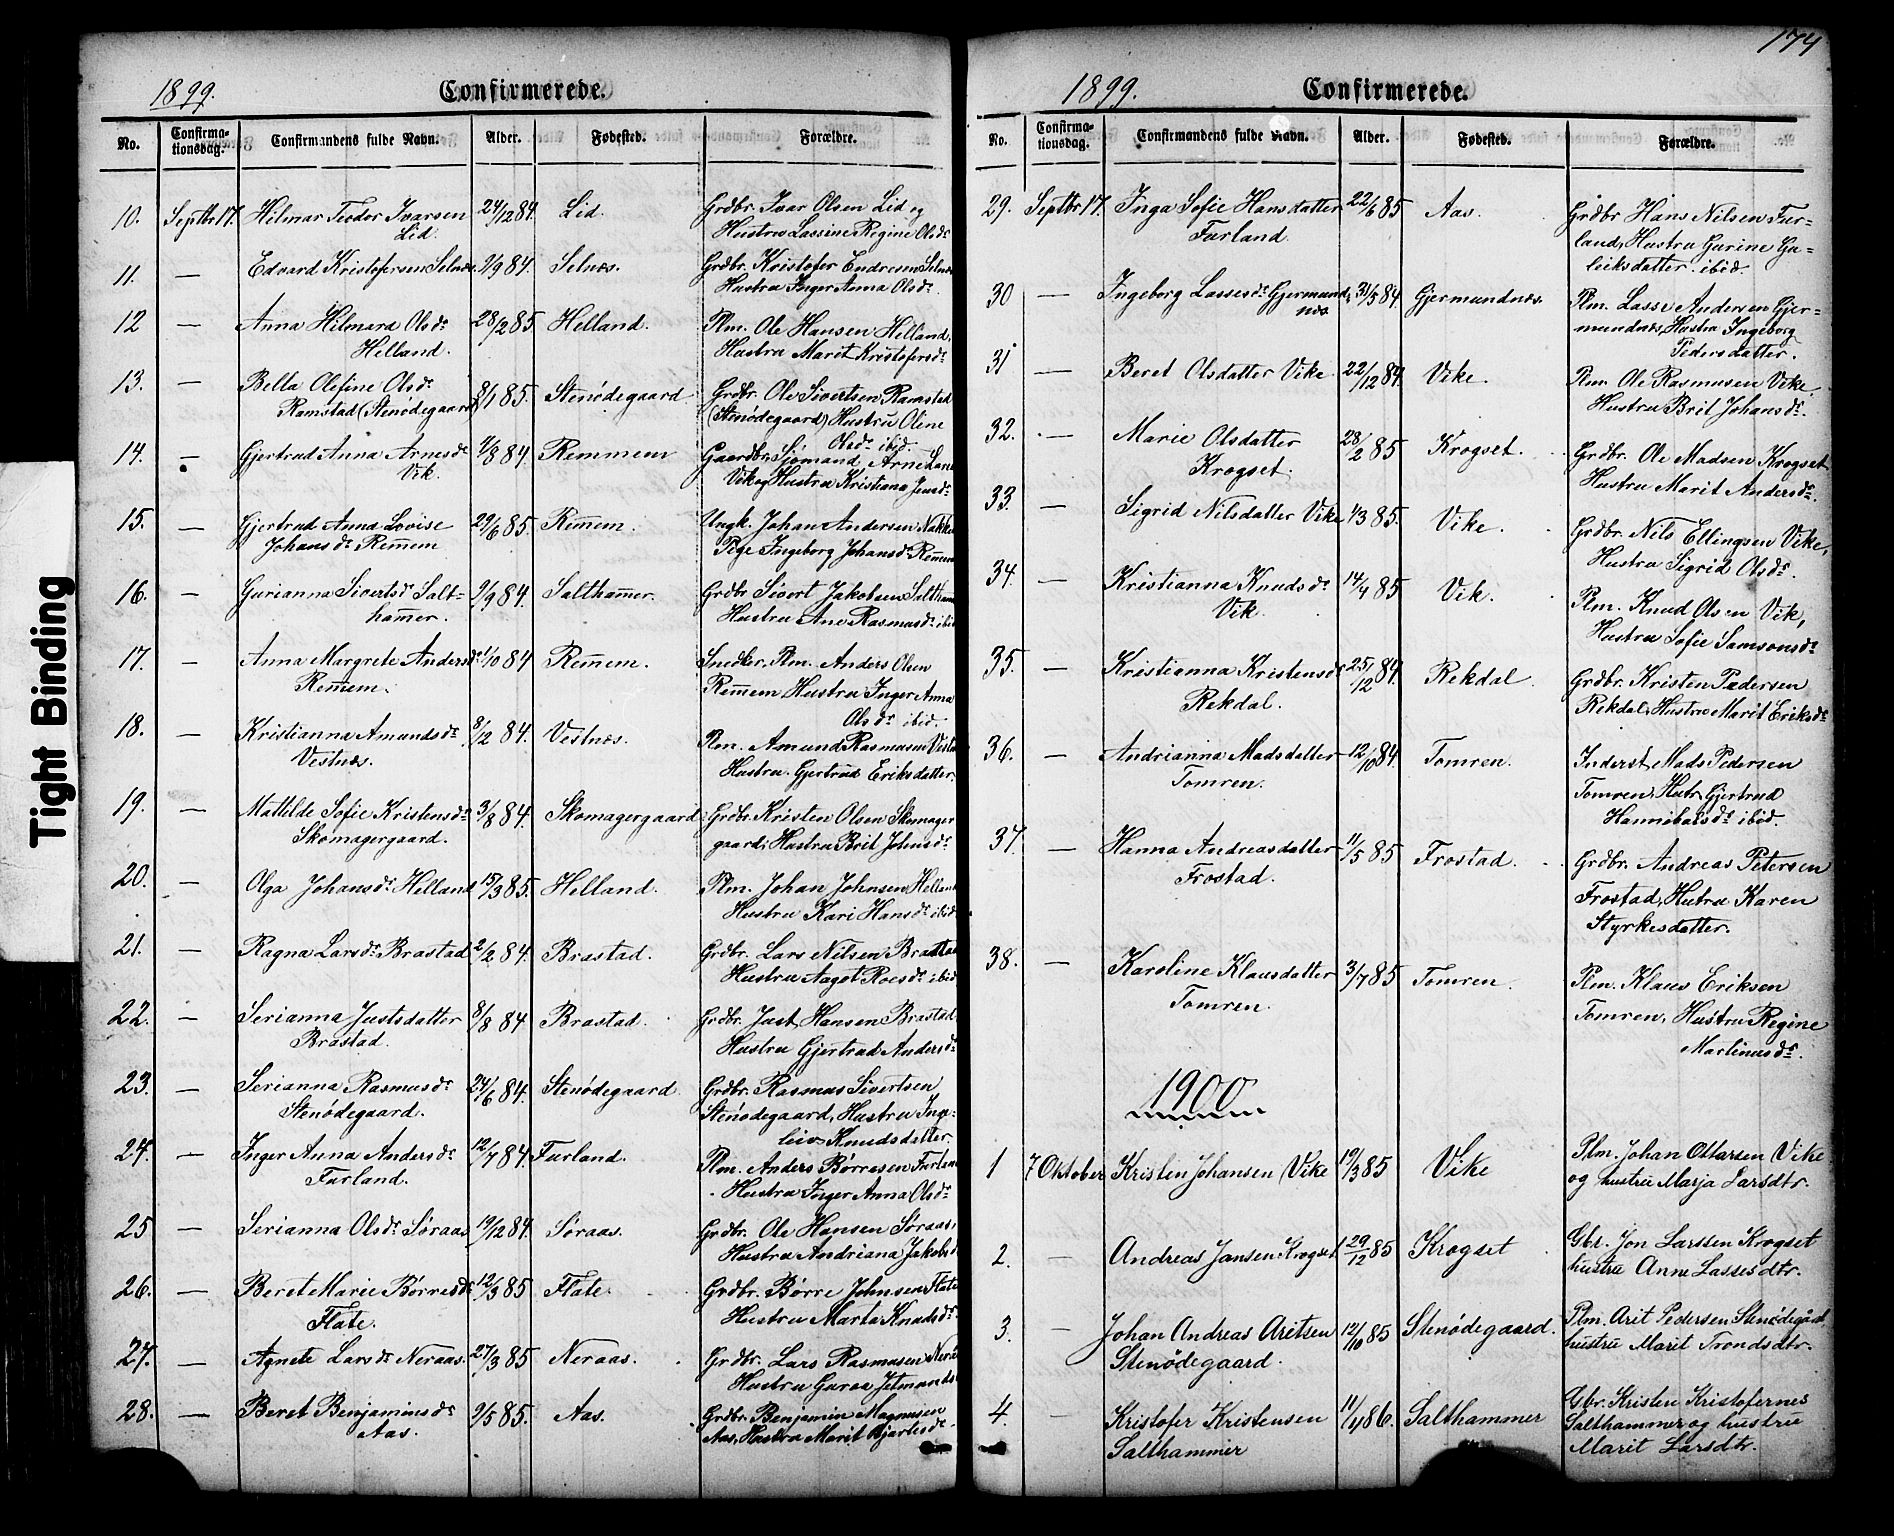 Tight Binding
1899.
Confirmerede.
No. Confirma- Confirmandens fulde Navn. Alder. Fødested. Forældre.
tionsdag.
10. Septbr 17. Hilmar Teodor Ivarsen 24/12 84. Lid. Grdbr. Ivar Olsen Lid og
Lid. Hustru Lassine Regine Olsdr
11. — Edvard Kristofersen Selnæs 9/9 84. Selnæs. Grdbr. Kristofer Endresen Selnæs
Hustru Inger Anna Olsdr
12 — Anna Hilmara Olsdr 28/2 85. Helland. Plm. Ole Hansen Helland,
Helland. Hustru Marit Kristofersdr
13. — Bella Olefine Olsdr 8/1 85. Stenødegaard Grdbr. Ole Sivertsen Ramstad
Ramstad (Stenødegaard) (Stenødegaard) Hustru Oline
Olsdr ibid.
14. — Gjertrud Anna Arnesdr 7/8 84. Remmem Gaardbr. Sjømand, Arne
Vik. Vik og Hustru Kristiana Jensdr
15. — Gjertrud Anna Lovise 29/6 85. Rem̄em. Ungk. Johan Andersen Nakke
Johansdr Rem̄em Pige Ingeborg Johansdr Rem̄em
16. — Gurianna Sivertsdr Salt- 9/9 84. Saltham̄er. Grdbr Sivert Jakobsen Saltham̄
ham̄er. Hustru Ane Rasmusdr ibid
17. — Anna Margrete Andersdr 1/10 84 Rem̄em. Snedker. Plm. Anders Olsen
Rem̄em. Rem̄em Hustru Inger Anna
Olsdr ibid.
18. — Kristianna Amundsdr 8/12 84. Vestnæs. Plm. Amund Rasmusen Vestn
Vestnæs. Hustru. Gjertrud Eriksdatter.
19. — Mathilde Sofie Kristensdr 3/8 84. Skomagergaard Grdbr. Kristen Olsen Skomager
Skomagergaard. gaard; Hustru Brit Johnsdr
20. — Olga Johansdr Helland 15/3 85. Helland. Plm. Johan Johnsen Helland
Hustru Kari Hansdr ibid
21. — Ragna Larsdr Brastad 2/2 84. Brastad. Grdbr. Lars Nilsen Brastad
Hustru Aagot Roesdr ibid
22. — Serianna Justsdatter 8/8 84 Brastad. Grdbr. Just Hansen Brastad
Brastad. Hustru Gjertrud Andersdr
23. — Serianna Rasmusdr 24/6 84. Stenødegaard Grdbr. Rasmus Sivertsen
Stenødegaard. Stenødegaard, Hustru Inge-
leiv Knudsdatter.
24. — Inger Anna Andersdr 12/7 84. Furland. Plm. Anders Børresen Furlan
Furland. Hustru Inger Anna Olsdr
25 — Serianna Olsdr Søraas 19/12 84. Søraas. Grdbr. Ole Hansen Søraas,
Hustru Andriana Jakobsd
26. — Beret Marie Børresdr 12/3 85 Flate. Grdbr. Børre Johnsen Flate
Flate. Hustru Marta Knudsdr
27. — Agnete Larsdr Neraas. 27/3 85 Neraas. Grdbr. Lars Rasmusen Nera
Hustru Guroa Jetmunds
28. — Beret Benjaminsdr 9/5 85. Aas. Grdbr. Benjamin Magnusen
Aas. Aas, Hustru Marit Bjartesdr
174
1899.
Confirmerede.
No. Confirma- Confirmandens fulde Navn. Alder. Fødested. Forældre.
tionsdag.
29. Septbr 17. Inga Sofie Hansdatter 22/6 85 Aas. Grdbr Hans Nilsen Fur-
Furland. land, Hustru Gurine Gu-
leiksdatter. ibid.
30 — Ingeborg Lassesdr Gjermund- 31/5 84. Gjermundnæs. Plm. Lasse Andersen Gjer-
næs. mundnæs, Hustru Ingeborg
Pedersdatter.
31 — Beret Olsdatter Vike 22/12 84. Vike. Plm. Ole Rasmusen Vike,
Hustru Brit Johansdr.
32. — Marie Olsdatter 28/2 85 Krogset. Grdbr. Ole Madsen Krogset
Krogset. Hustru Marit Andersdr.
33. — Sigrid Nilsdatter Vike 1/3 85. Vike. Grdbr. Nils Ellingsen Vike,
Hustru Sigrid Olsdr.
34. — Kristianna Knudsdr 14/4 85 Vik. Plm. Knud Olsen Vik,
Vik. Hustru Sofie Samsonsdr
35. — Kristianna Kristensdr 25/12 84. Rekdal. Grdbr. Kristen Pedersen
Rekdal. Rekdal, Hustru Marit Eriksdr
36. — Andrianna Madsdatter 12/10 84. Tomren. Inderst, Mads Pedersen
Tomren. Tomren, Hustr. Gjertrud
Hannibalsdr ibid.
37. — Hanna Andreasdatter 11/5 85 Frostad. Grdbr. Andreas Petersen
Frostad. Frostad, Hustru Karen
Styrkesdatter.
38. — Karoline Klausdatter 3/7 85 Tomren. Plm. Klaus Eriksen
Tomren. Tomren, Hustru Regine
Martinusdr.
1900
1 7 Oktober Kristen Johansen Vike 19/3 85 Vike Plm. Johan Ottarsen Vike
og hustru Marja Larsdtr.
2. — Andreas Jonsen Krogset 29/12 85 Krogset Gbr. Jon Larssen Krogset
hustru Anne Lassesdtr.
3. — Johan Andreas Aritsen 12/10 85 Stenødegaard. Plm. Arit Pedersen Stenødegård
Stenødegaard. hustru Marit Trondsdtr.
4. — Kristofer Kristensen 11/4 86. Salthammer Gbr. Kristen Kristofernes
Salthammer Salthammer og hustru
Marit Larsdtr.